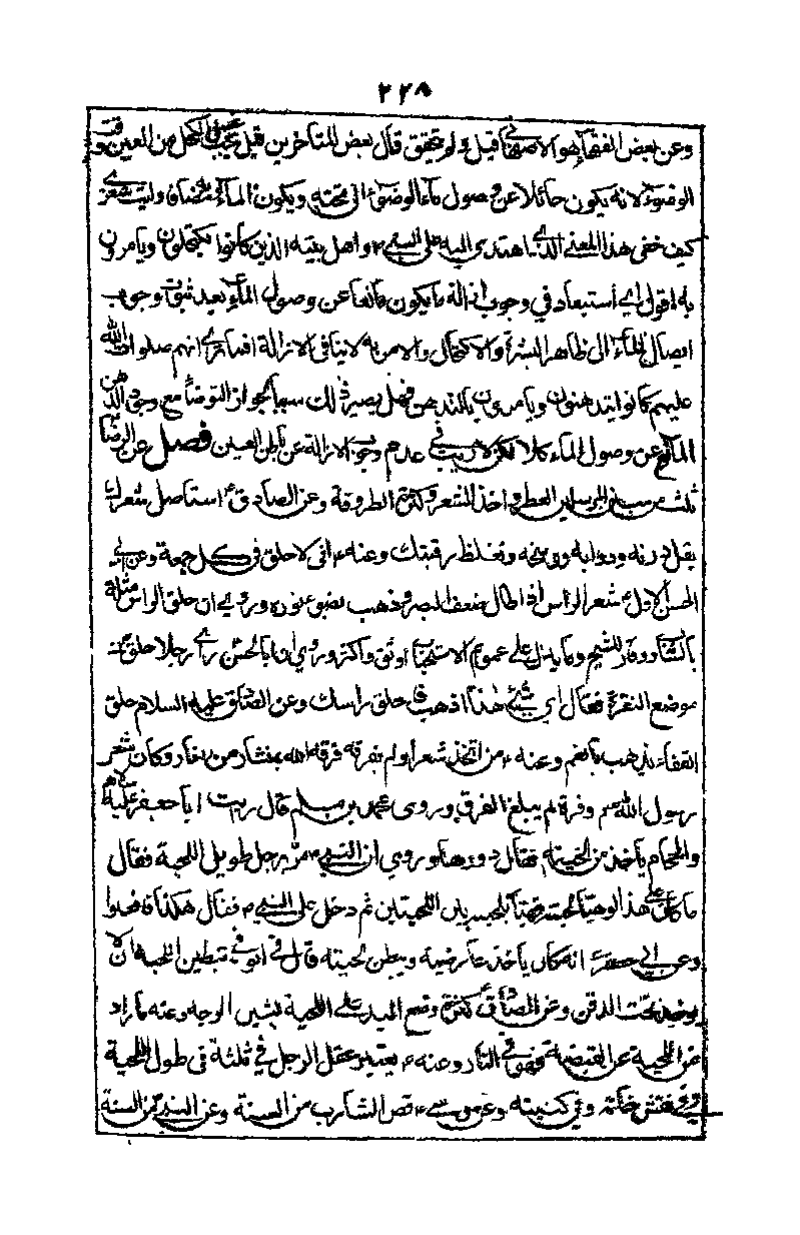 ٢٢٨
وعن بعض الفقهآء هو الاصفهانى قيل ولم يتحقق قال بعض المتأخرين قيل يجب الكحل من العين وقت
الوضوء لانه يكون حائلا عن وصول مآء الوضوء الى تحته ويكون المآء مضاف وليت شعرى
كيف خفى هذا المعنى الذى اهتدى اليه على النبى واهل بيته الذين كانوا يكتحلون ويأمرون
به اقول اى استبعاد فى وجوب ازالة ما يكون مانعا عن وصول المآء بعد ثبوت وجوب
ايصال المآء الى ظاهر البشرة والاكتحال والامر به لا ينافى الازالة افما ترى انهم صلوات الله
عليهم كانوا يتدهنون ويأمرون بالتدهن فهل يصير ذلك سببا لجواز التوضأ مع وجود الدهن
المانع عن وصول المآء كلا لكن لا ريب فى عدم وجوب الازالة عن باطن العين فصل عن الرضا
ثلث من سنن المرسلين العطر واخذ الشعر وكثرة الطروقة وعن الصادق ع استاصل شعرك
يقل درنه ودوابه ووسخه وتغلظ رقبتك وعنه انى لا حلق فى كل جمعة وعن ابى
الحسن الاول شعر الراس اذا طال ضعف البصر وذهب بضوء نوره وروى ان حلق الراس مثلة
بالشاب ووقار للشيخ وما يدل على عموم الاستحباب اوثق واكثر وروى ان ابا الحسن رأى رجلا حلق
موضع النقرة فقال اى شئ هذا اذهب فاحلق راسك وعن الصادق عليه السلام حلق
القفاء يذهب بالغم وعنه من اتخذ شعرا ولم يفرقه فرقه الله بمنشار من نار وكان شعر
رسول الله وفرة لم يبلغ الفرق وروى محمد بن مسلم قال رايت ابا جعفر عليه السلام
والحجام يأخذ من لحيته فقال دورها وروى ان النبى مر برجل طويل اللحية فقال
ما كان على هذا لو هيأ لحيته فهيأ لحيته بين اللحيتين ثم دخل على النبى فقال هكذا فافعلوا
وعن ابى جعفر انه كان يأخذ عارضيه ويبطن لحيته قال فى الوافى تبطين اللحية ان لا
يوخذ تحت الذقن وعن الصادق كثرة وضع اليد على اللحية يشين الوجه وعنه ما زاد
من اللحية عن القبضة فهو فى النار وعنه يعتبر عقل الرجل فى ثلثة فى طول اللحية
وفى نقش خاتمه وفى كنيته وعن موسى قص الشارب من السنة وعن النبى من السنة